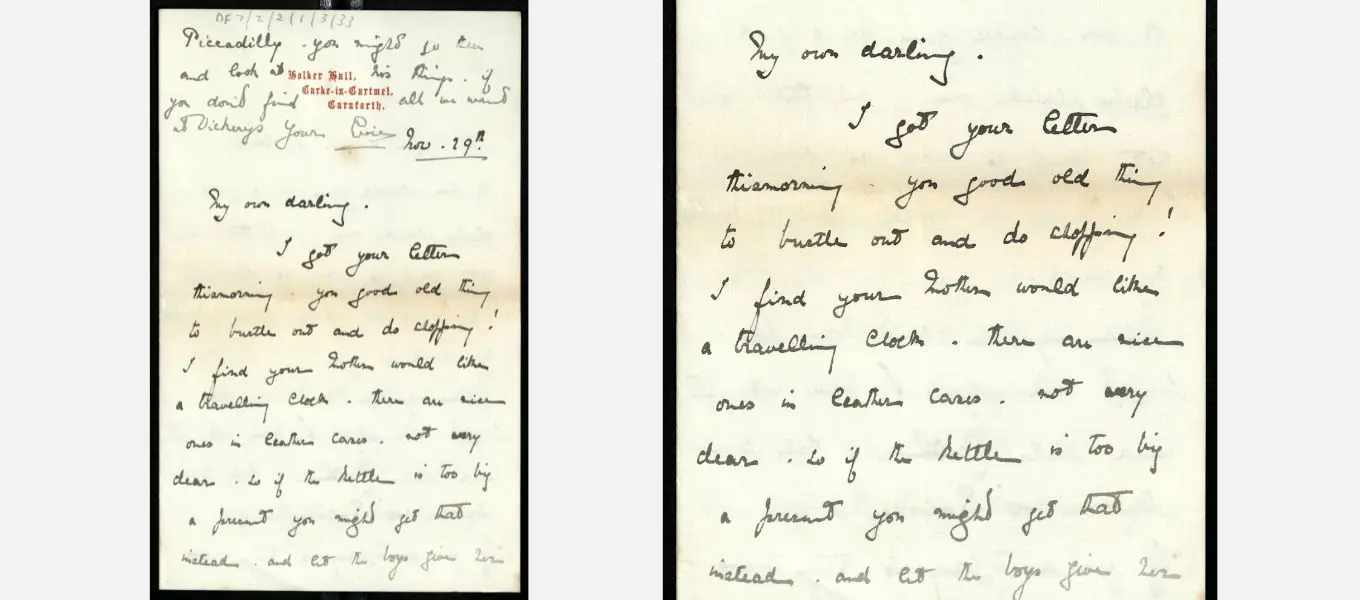 Piccadilly. you might go there
and look at his things. if
you don't find all we want
at Vickerys Your Evie
Holker Hall,
Carke-in-Cartmel,
Carnforth.
Nov. 29th.
My own darling.
I got your letter
thismorning. you good old thing
to bustle out and do shopping!
I find your Mother would like
a travelling clock. there are nice
ones in leather cases. not very
dear. so if the kettle is too big
a present you might get that
instead. and let the boys give her
My own darling.
I got your letter
thismorning. you good old thing
to bustle out and do shopping!
I find your Mother would like
a travelling clock. there are nice
ones in leather cases. not very
dear. so if the kettle is too big
a present you might get that
instead. and let the boys give her